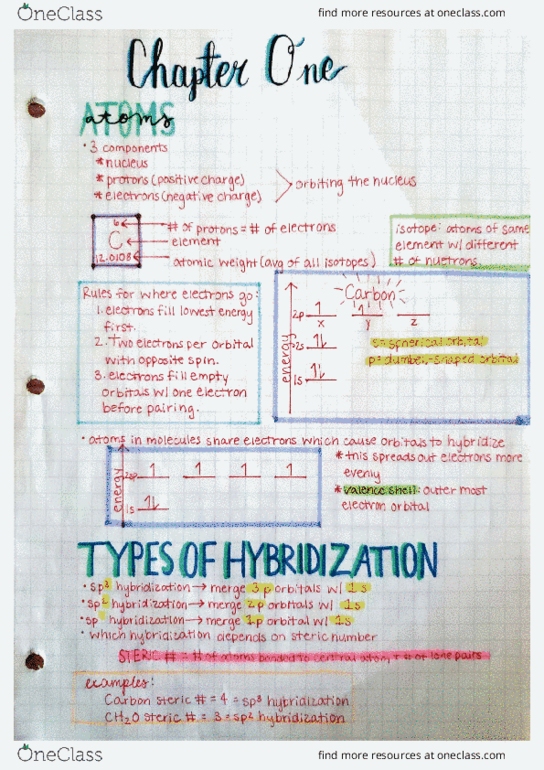 OneClass
find more resources at oneclass.com
Chapter One
ATOMS
atoms
• 3 components
* nucleus
* protons (positive charge)
* electrons (negative charge)
> orbiting the nucleus
6
C
12.0108
# of protons = # of electrons
element
atomic weight (avg of all isotopes)
isotope: atoms of same
element w/ different
# of nuetrons.
Rules for where electrons go:
1. electrons fill lowest energy
first.
2. Two electrons per orbital
with opposite spin.
3. electrons fill empty
orbitals w/ one electron
before pairing.
Carbon
energy
2p 1 1
x y z
2s 1l
1s 1l
s = spherical orbital
p = dumbell-shaped orbital
• atoms in molecules share electrons which cause orbitals to hybridize
* this spreads out electrons more
evenly
* valence shell: outer most
electron orbital
energy
2sp 1 1 1 1
1s 1l
TYPES OF HYBRIDIZATION
• sp³ hybridization → merge 3 p orbitals w/ 1 s
• sp² hybridization → merge 2 p orbitals w/ 1 s
• sp hybridization → merge 1 p orbital w/ 1 s
• which hybridization depends on steric number
STERIC # = # of atoms bonded to central atom + # of lone pairs
examples:
Carbon steric # = 4 = sp³ hybridization
CH2O steric # = 3 = sp² hybridization
OneClass
find more resources at oneclass.com